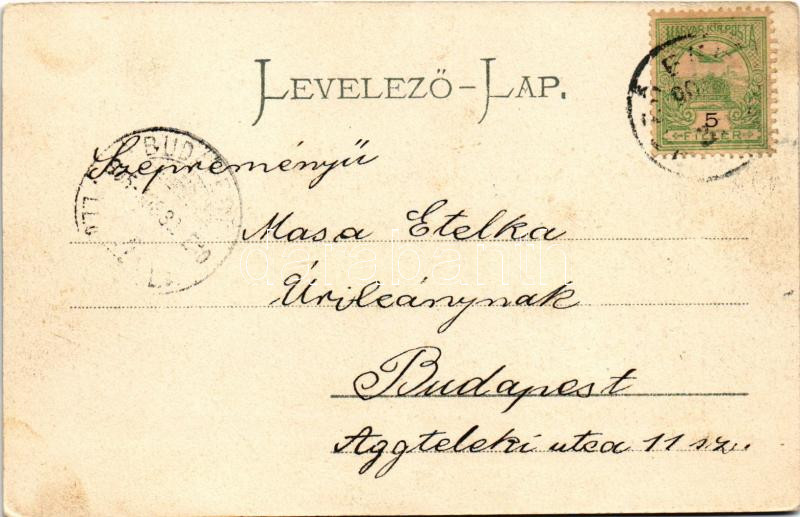 LEVELEZŐ-LAP.
MAGYAR KIR. POSTA
5
FILLÉR
BUDAPEST
Szepreményű
Masa Etelka
Úrileánynak
Budapest
Aggteleki utca 11 sz.